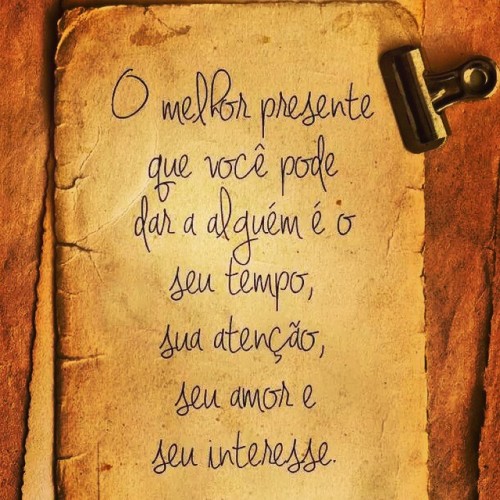 O melhor presente
que você pode
dar a alguém é o
seu tempo,
sua atenção,
seu amor e
seu interesse.